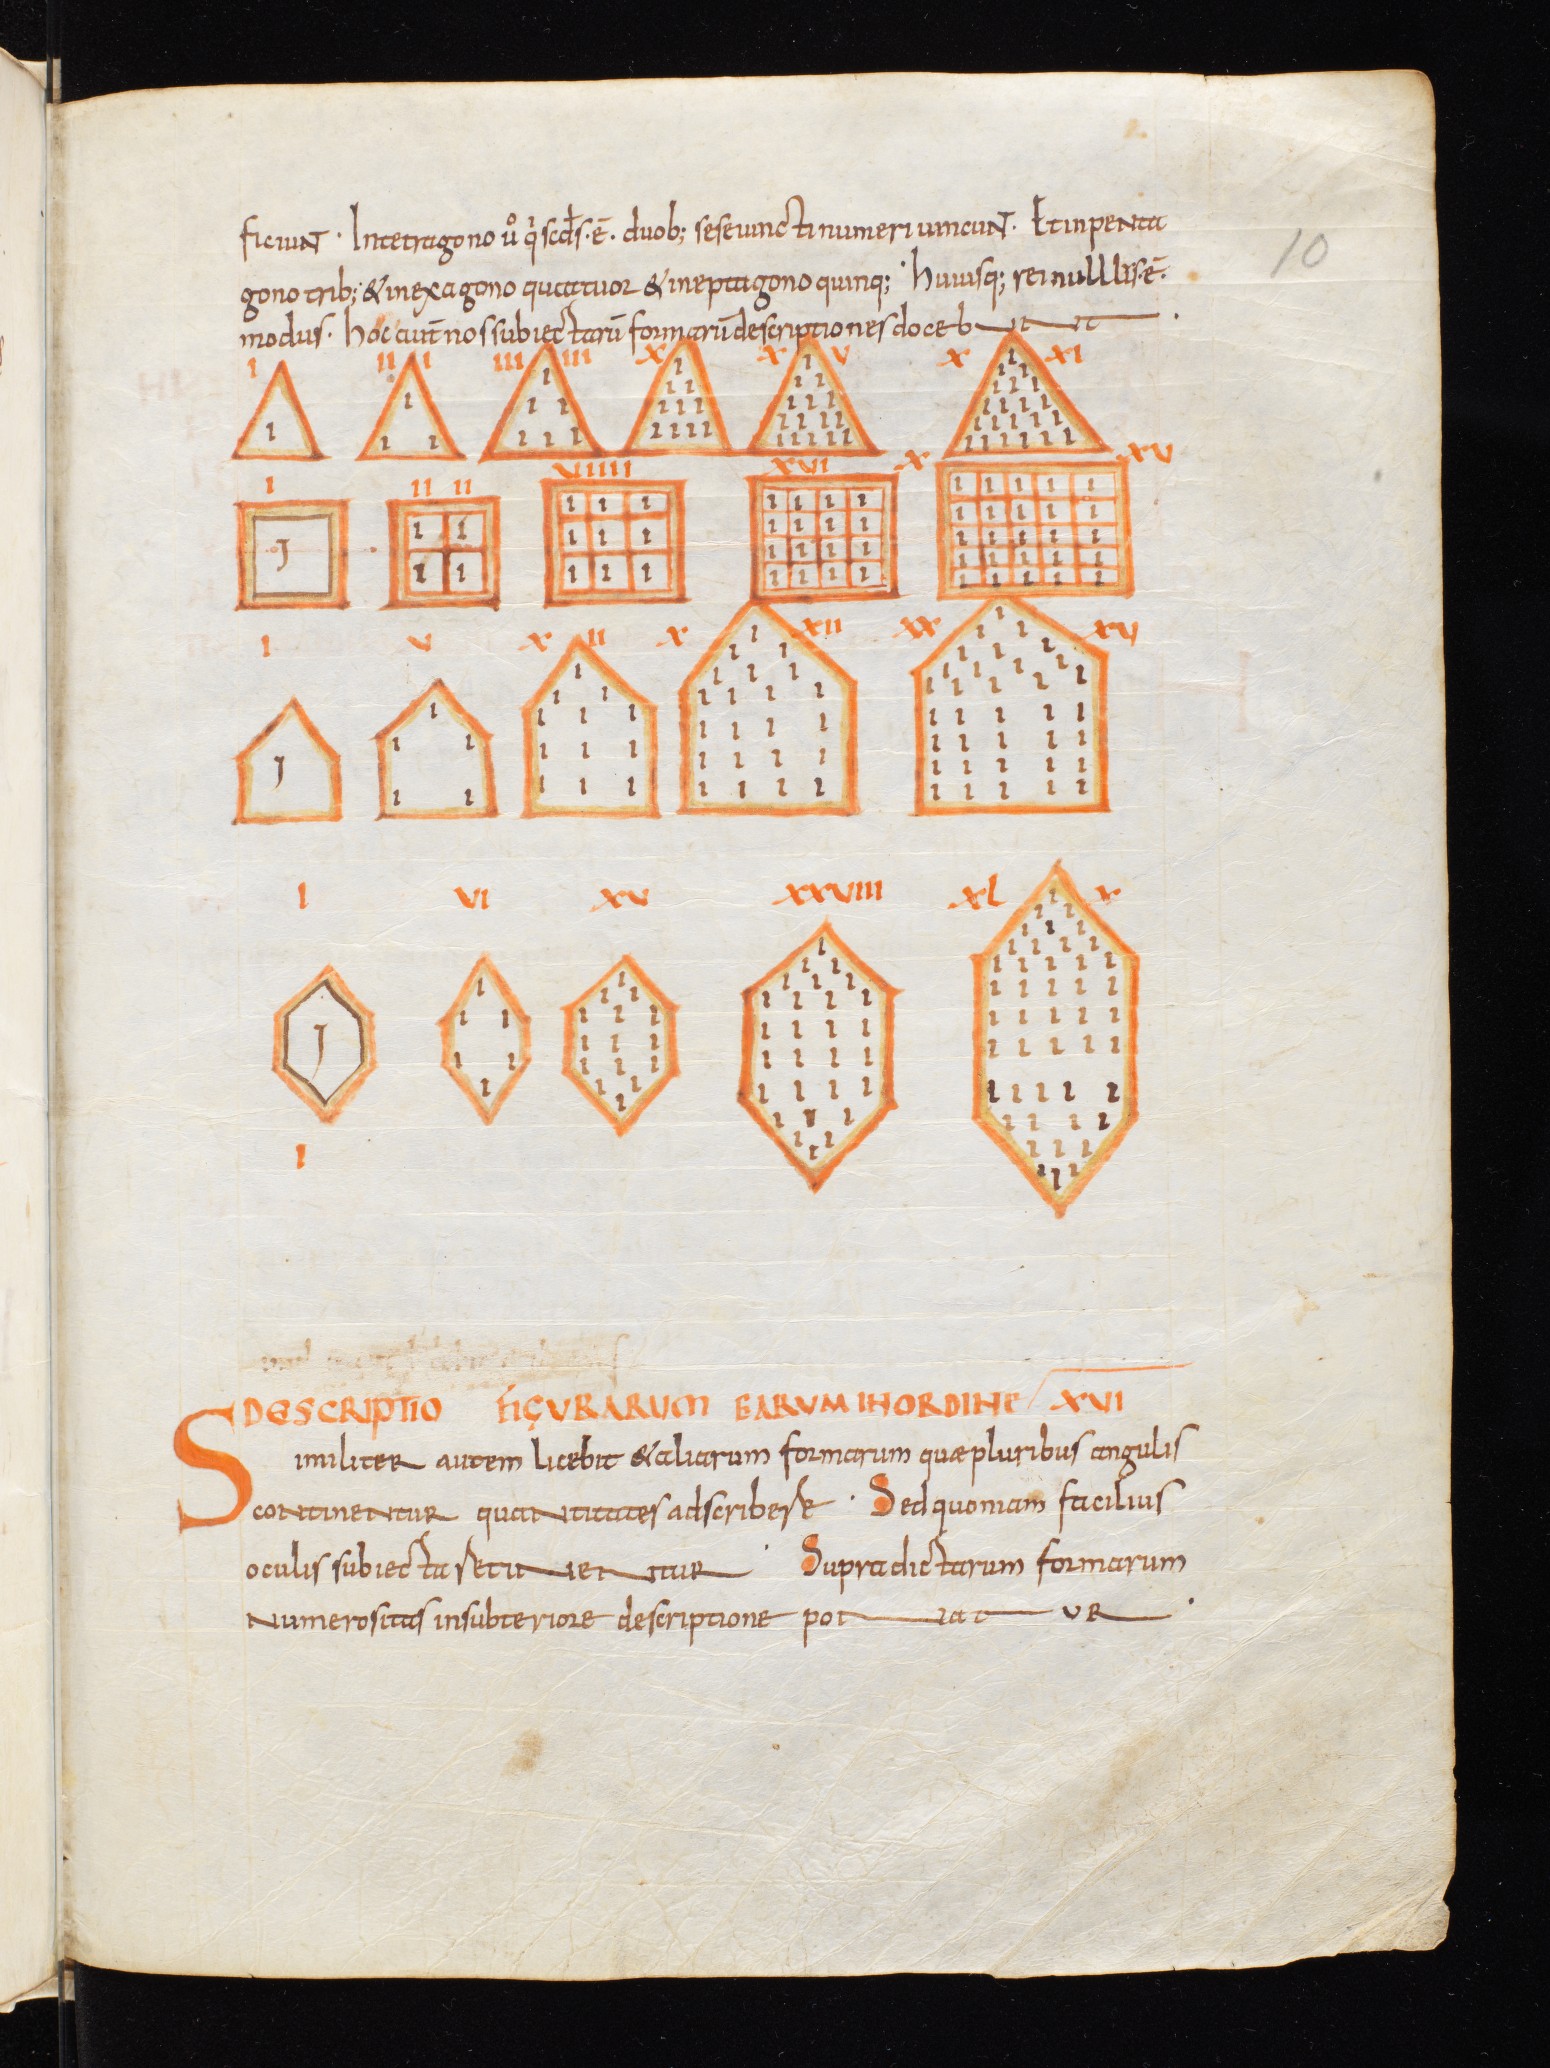 ficiunt · Intetragono uͦ qͥ scđs · ē · duob; seseuincti numeri uincunt · Et inpenta
gono trib; & inexagono quatuor & ineptagono quinq; · huiusq; rei nullus · ē ·
modus · hoc aut̄ nos subiectarū formarū descriptiones doceb it ·
10
I II I III III X X V X XI
I II II VIIII XVI X XV
I V X II X XII XX XV
I VI XV XXVIII XL V
I
DESCRIPTIO FIGURARUM EARUM INORDINE XVI
Similiter autem licebit & aliarum formarum quæ pluribus angulis
continentur quantitates adscribere · Sed quoniam facilius
oculis subiecta retinentur · Supra dictarum formarum
numerositas insubteriore descriptione ponatur ·